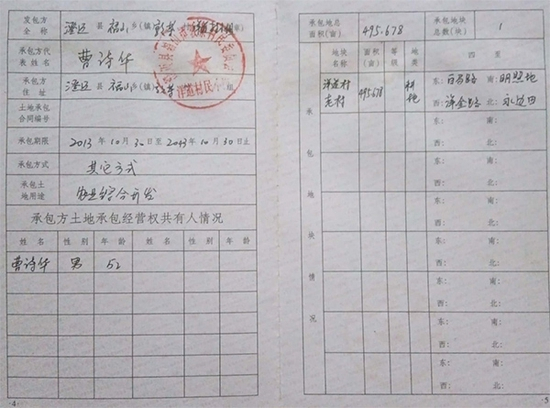 发包方全称 澄迈县福山乡(镇)敦茶
承包方代表姓名 曹诗华
承包方住址 澄迈县福山乡(镇)敦茶 组
洋道村民小组
土地承包合同编号
承包期限 2013年10月30日至2043年10月30日止
承包方式 其它方式
承包土地用途 农业综合开发
承包方土地承包经营权共有人情况
姓名 性别 年龄 姓名 性别 年龄
曹诗华 男 52
·4·
承包地总面积(亩) 495.678 承包地块总数(块) 1
承包地块情况
地块名称 面积(亩) 等级 地类 四至
洋道村 495.678 耕地 东: 南:
西: 北:
东: 南:
西: 北:
东: 南:
西: 北:
东: 南:
西: 北:
东: 南:
西: 北:
东: 南:
西: 北:
东: 南:
西: 北:
5